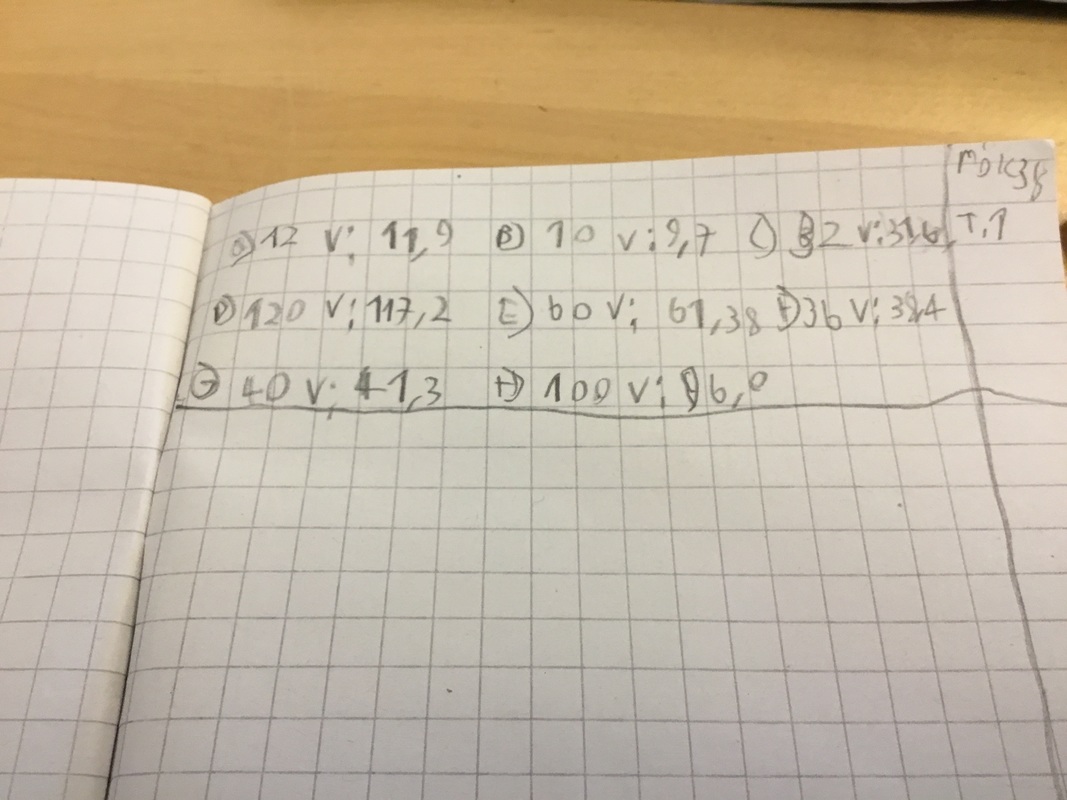 MDK38
a) 12 V: 11,9 B) 10 V: 9,7 C) 32 V: 31,6 T.1
D) 120 V: 117,2 E) 60 V: 61,38 F) 36 V: 38,4
G) 40 V: 41,3 H) 100 V: 96,0